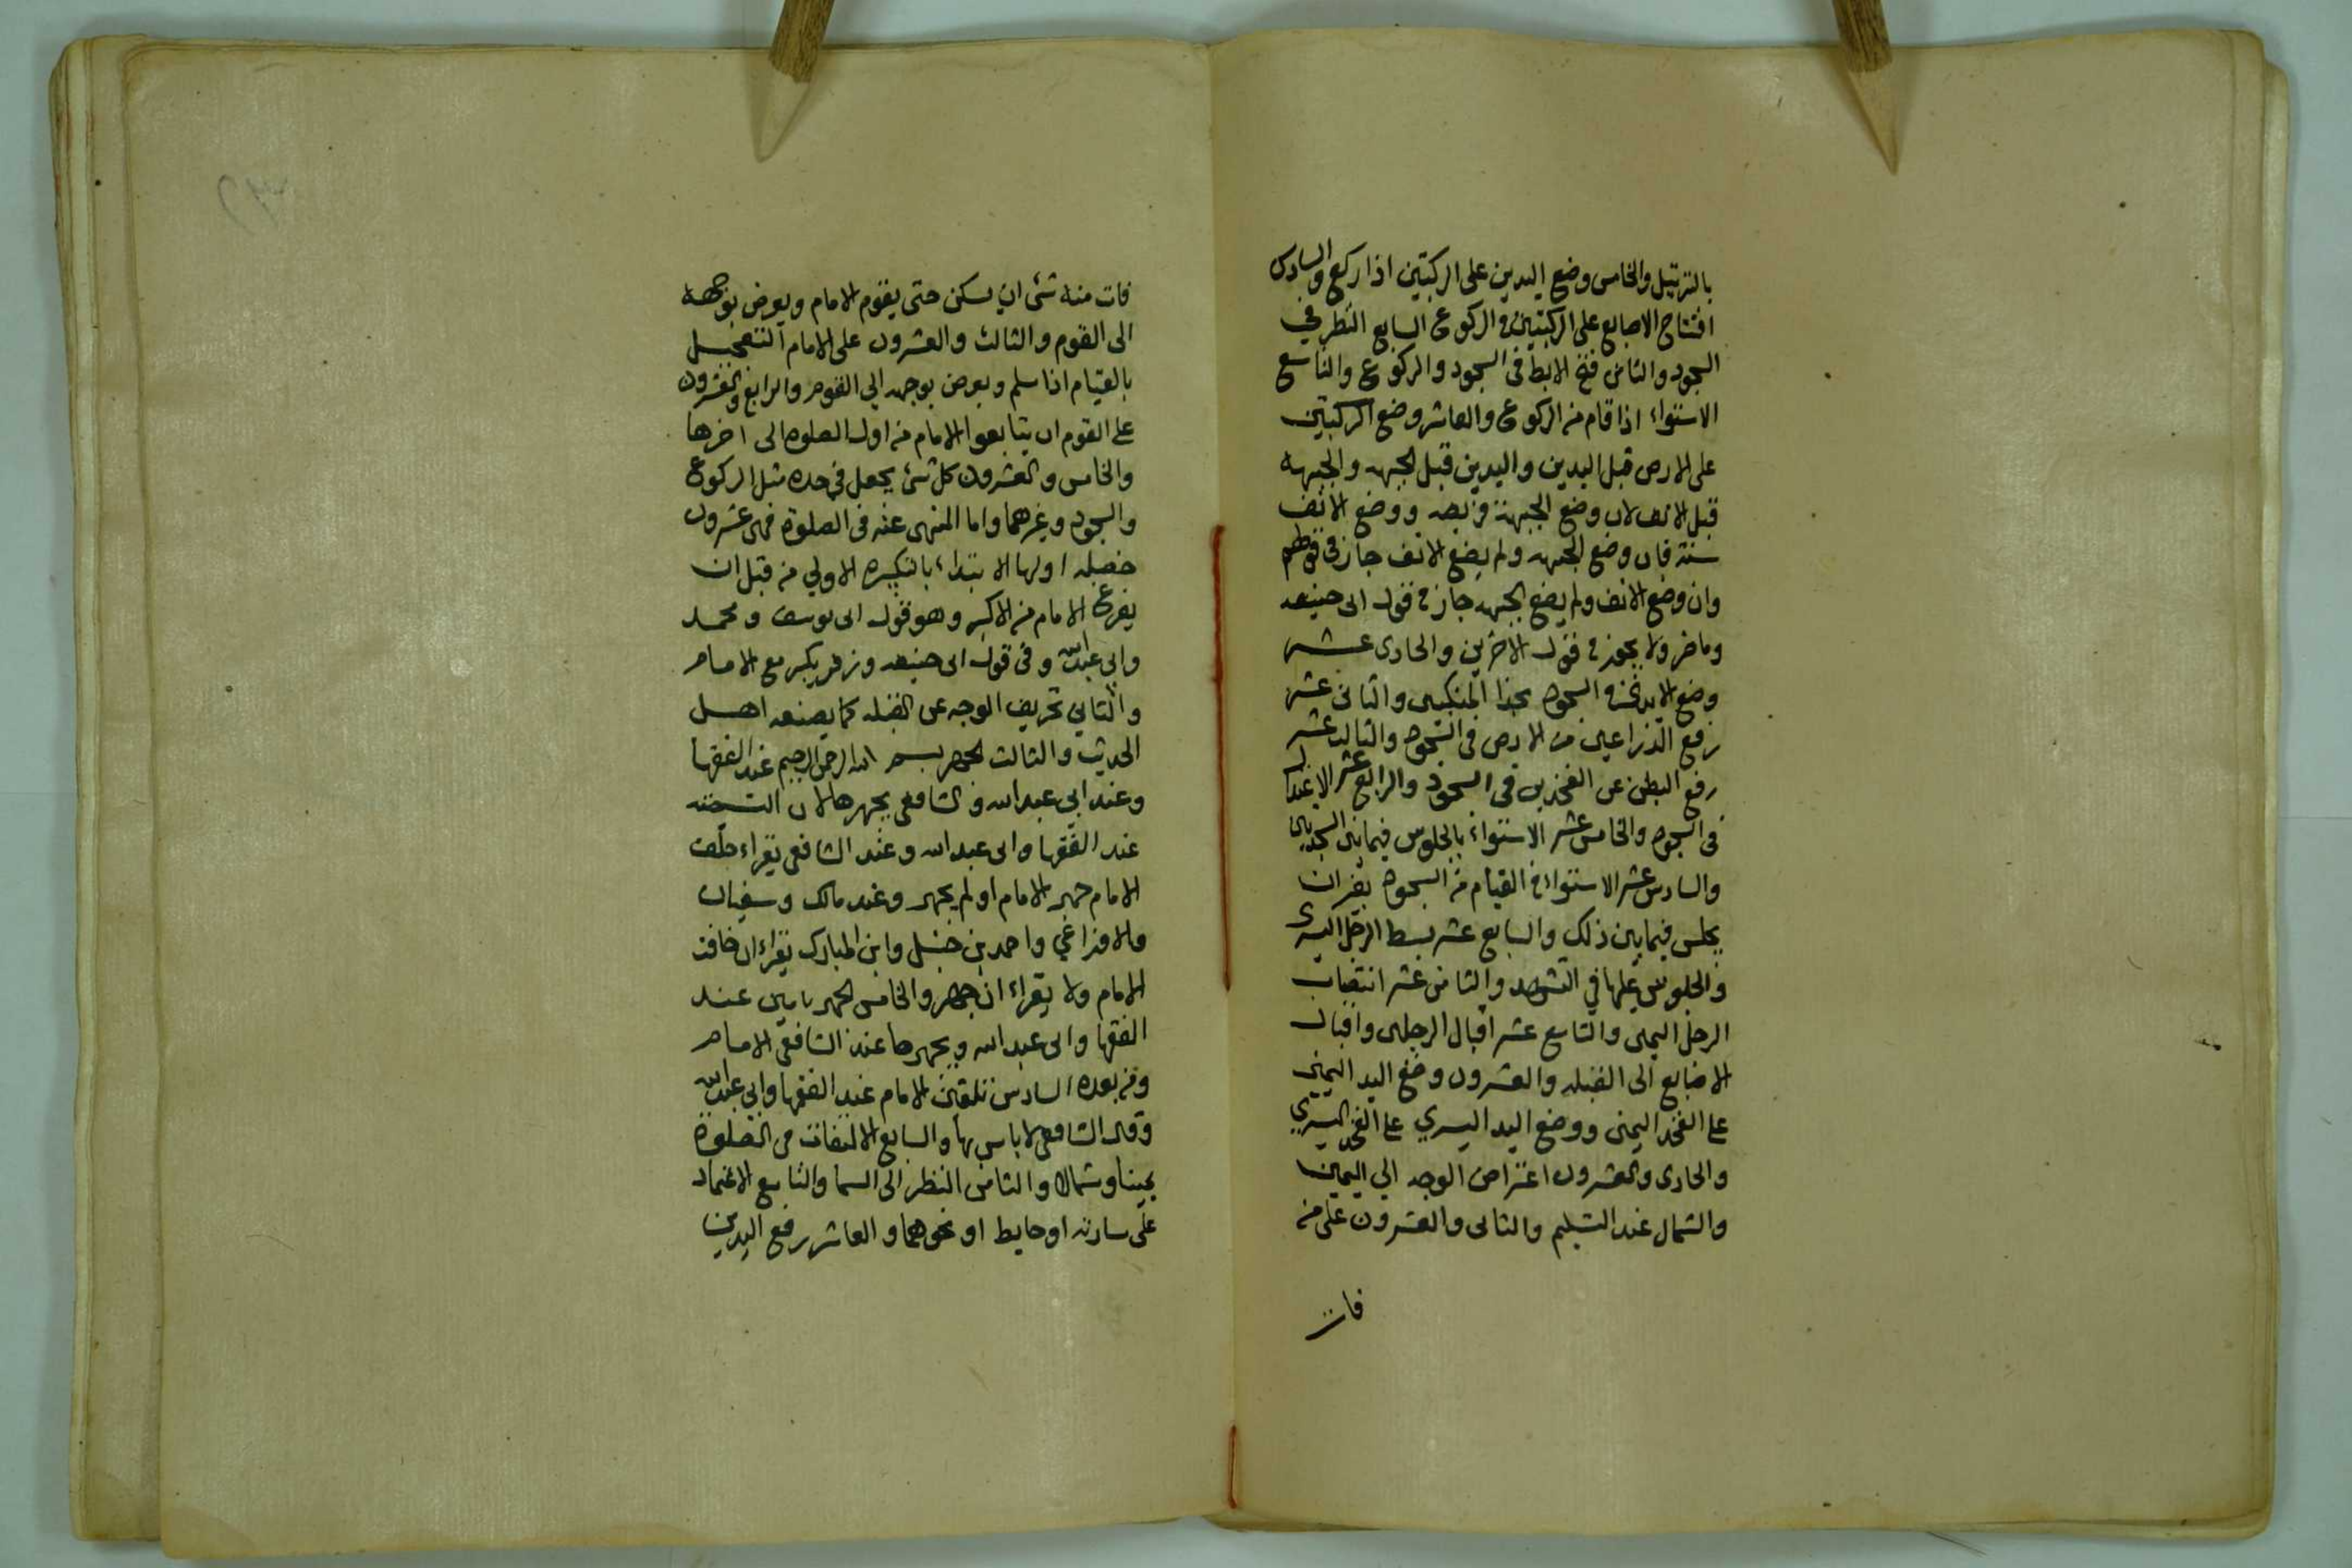 بالترتيل والخامس وضع اليدين على الركبتين اذا ركع والسادس
افتتاح الاصابع على الركبتين في الركوع السابع النظر في
السجود والثامن فتح الابط في السجود والركوع والتاسع
الاستواء اذا قام من الركوع والعاشر وضع الركبتين
على الارض قبل اليدين واليدين قبل الجبهه والجبهه
قبل الانف لان وضع الجبهة فريضه ووضع الانف
سنة فان وضع الجبهه ولم يضع الانف جاز في قولهم
وان وضع الانف ولم يضع الجبهه جاز في قول ابى حنيفه
وماضر ولا يجوز في قول الاخرين والحادى عشر
وضع الايدى في السجود بحذا المنكبين والثانى عشر
رفع الذراعين من الارض في السجود والثالث عشر
رفع البطن عن الفخذين في السجود والرابع عشر الاعتدال
في السجود والخامس عشر الاستواء بالجلوس فيما بين السجدتين
والسادس عشر الاستواء في القيام من السجود بغير ان
يجلس فيما بين ذلك والسابع عشر بسط الرجل اليسرى
والجلوس عليها في التشهد والثامن عشر انتصاب
الرجل اليمنى والتاسع عشر اقبال الرجلين واقبال
الاصابع الى القبله والعشرون وضع اليد اليمنى
على الفخذ اليمنى ووضع اليد اليسري على الفخذ اليسري
والحادى والعشرون اعتراض الوجه الي اليمين
والشمال عند التسليم والثانى والعشرون على من
فات
فات منه شئ ان يسكن حتى يقوم الامام ويعرض بوجهه
الى القوم والثالث والعشرون على الامام التعجيل
بالقيام اذا سلم ويعرض بوجهه الي القوم والرابع والعشرون
على القوم ان يتابعوا الامام من اول الصلوه الى اخرها
والخامس والعشرون كل شئ يجعل في حده مثل الركوع
والسجود وغيرهما واما المنهى عنه في الصلوة فهى عشرون
خصله اولها الابتداء بالتكبيره الاولي من قبل ان
يفرغ الامام من الاكبر وهو قول ابى يوسف ومحمد
وابي عبدالله وفى قول ابى حنيفه وزفر يكبر مع الامام
والثاني تحريف الوجه عن القبله كما يصنعه اهل
الحديث والثالث الجهر ببسم الله الرحمن الرحيم عند الفقها
وعند ابي عبدالله والشافعى يجهر بها لان
عند الفقها وابى عبدالله وعند الشافعى يقراء خلف
الامام جهر الامام او لم يجهر وعند مالك وسفيان
والاوزاعي واحمد بن حنبل وابن المبارك يقراء ان خافت
الامام ولا يقراء ان جهر والخامس الجهر بامين عند
الفقها وابى عبدالله ويجهر بها عند الشافعى الامام
ومن بعده السادس تلقين الامام عند الفقها وابي عبدالله
وقال الشافعى لا باس بها والسابع الالتفات في الصلوة
يمينا وشمالا والثامن النظر الى السما والتاسع الاعتماد
على ساريه او حايط او نحوهما والعاشر رفع اليدين